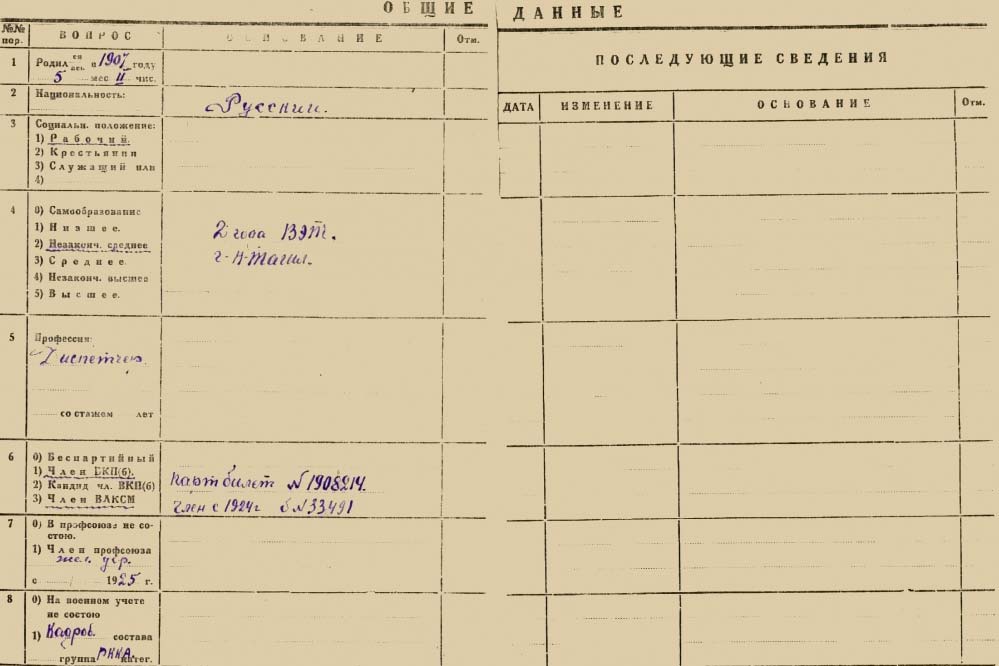 ОБЩИЕ ДАННЫЕ
№№ пор.
ВОПРОС
ОСНОВАНИЕ
Отм.
ПОСЛЕДУЮЩИЕ СВЕДЕНИЯ
ДАТА
ИЗМЕНЕНИЕ
ОСНОВАНИЕ
Отм.
1
Родил ся лась в 1907 году
5 мес 11 чис.
2
Национальность:
Русский.
3
Социальн. положение:
1) Рабочий.
2) Крестьянин
3) Служащий или
4)
4
0) Самообразование
1) Низшее.
2) Незаконч. среднее
3) Среднее.
4) Незаконч. высшее
5) Высшее.
2 года ВЭТ.
г-Н-Тагил.
5
Профессия:
Диспетчер.
со стажем лет
6
0) Беспартийный
1) Член ВКП(б).
2) Кандид чл. ВКП(б)
3) Член ВЛКСМ
Карт билет N 1908214.
член с 1924г б N 33491
7
0) В профсоюзе не со-
стою.
1) Член профсоюза
жел.
с 1925 г.
8
0) На военном учете
не состою
1) Кадров. состава
группа РККА. катег.